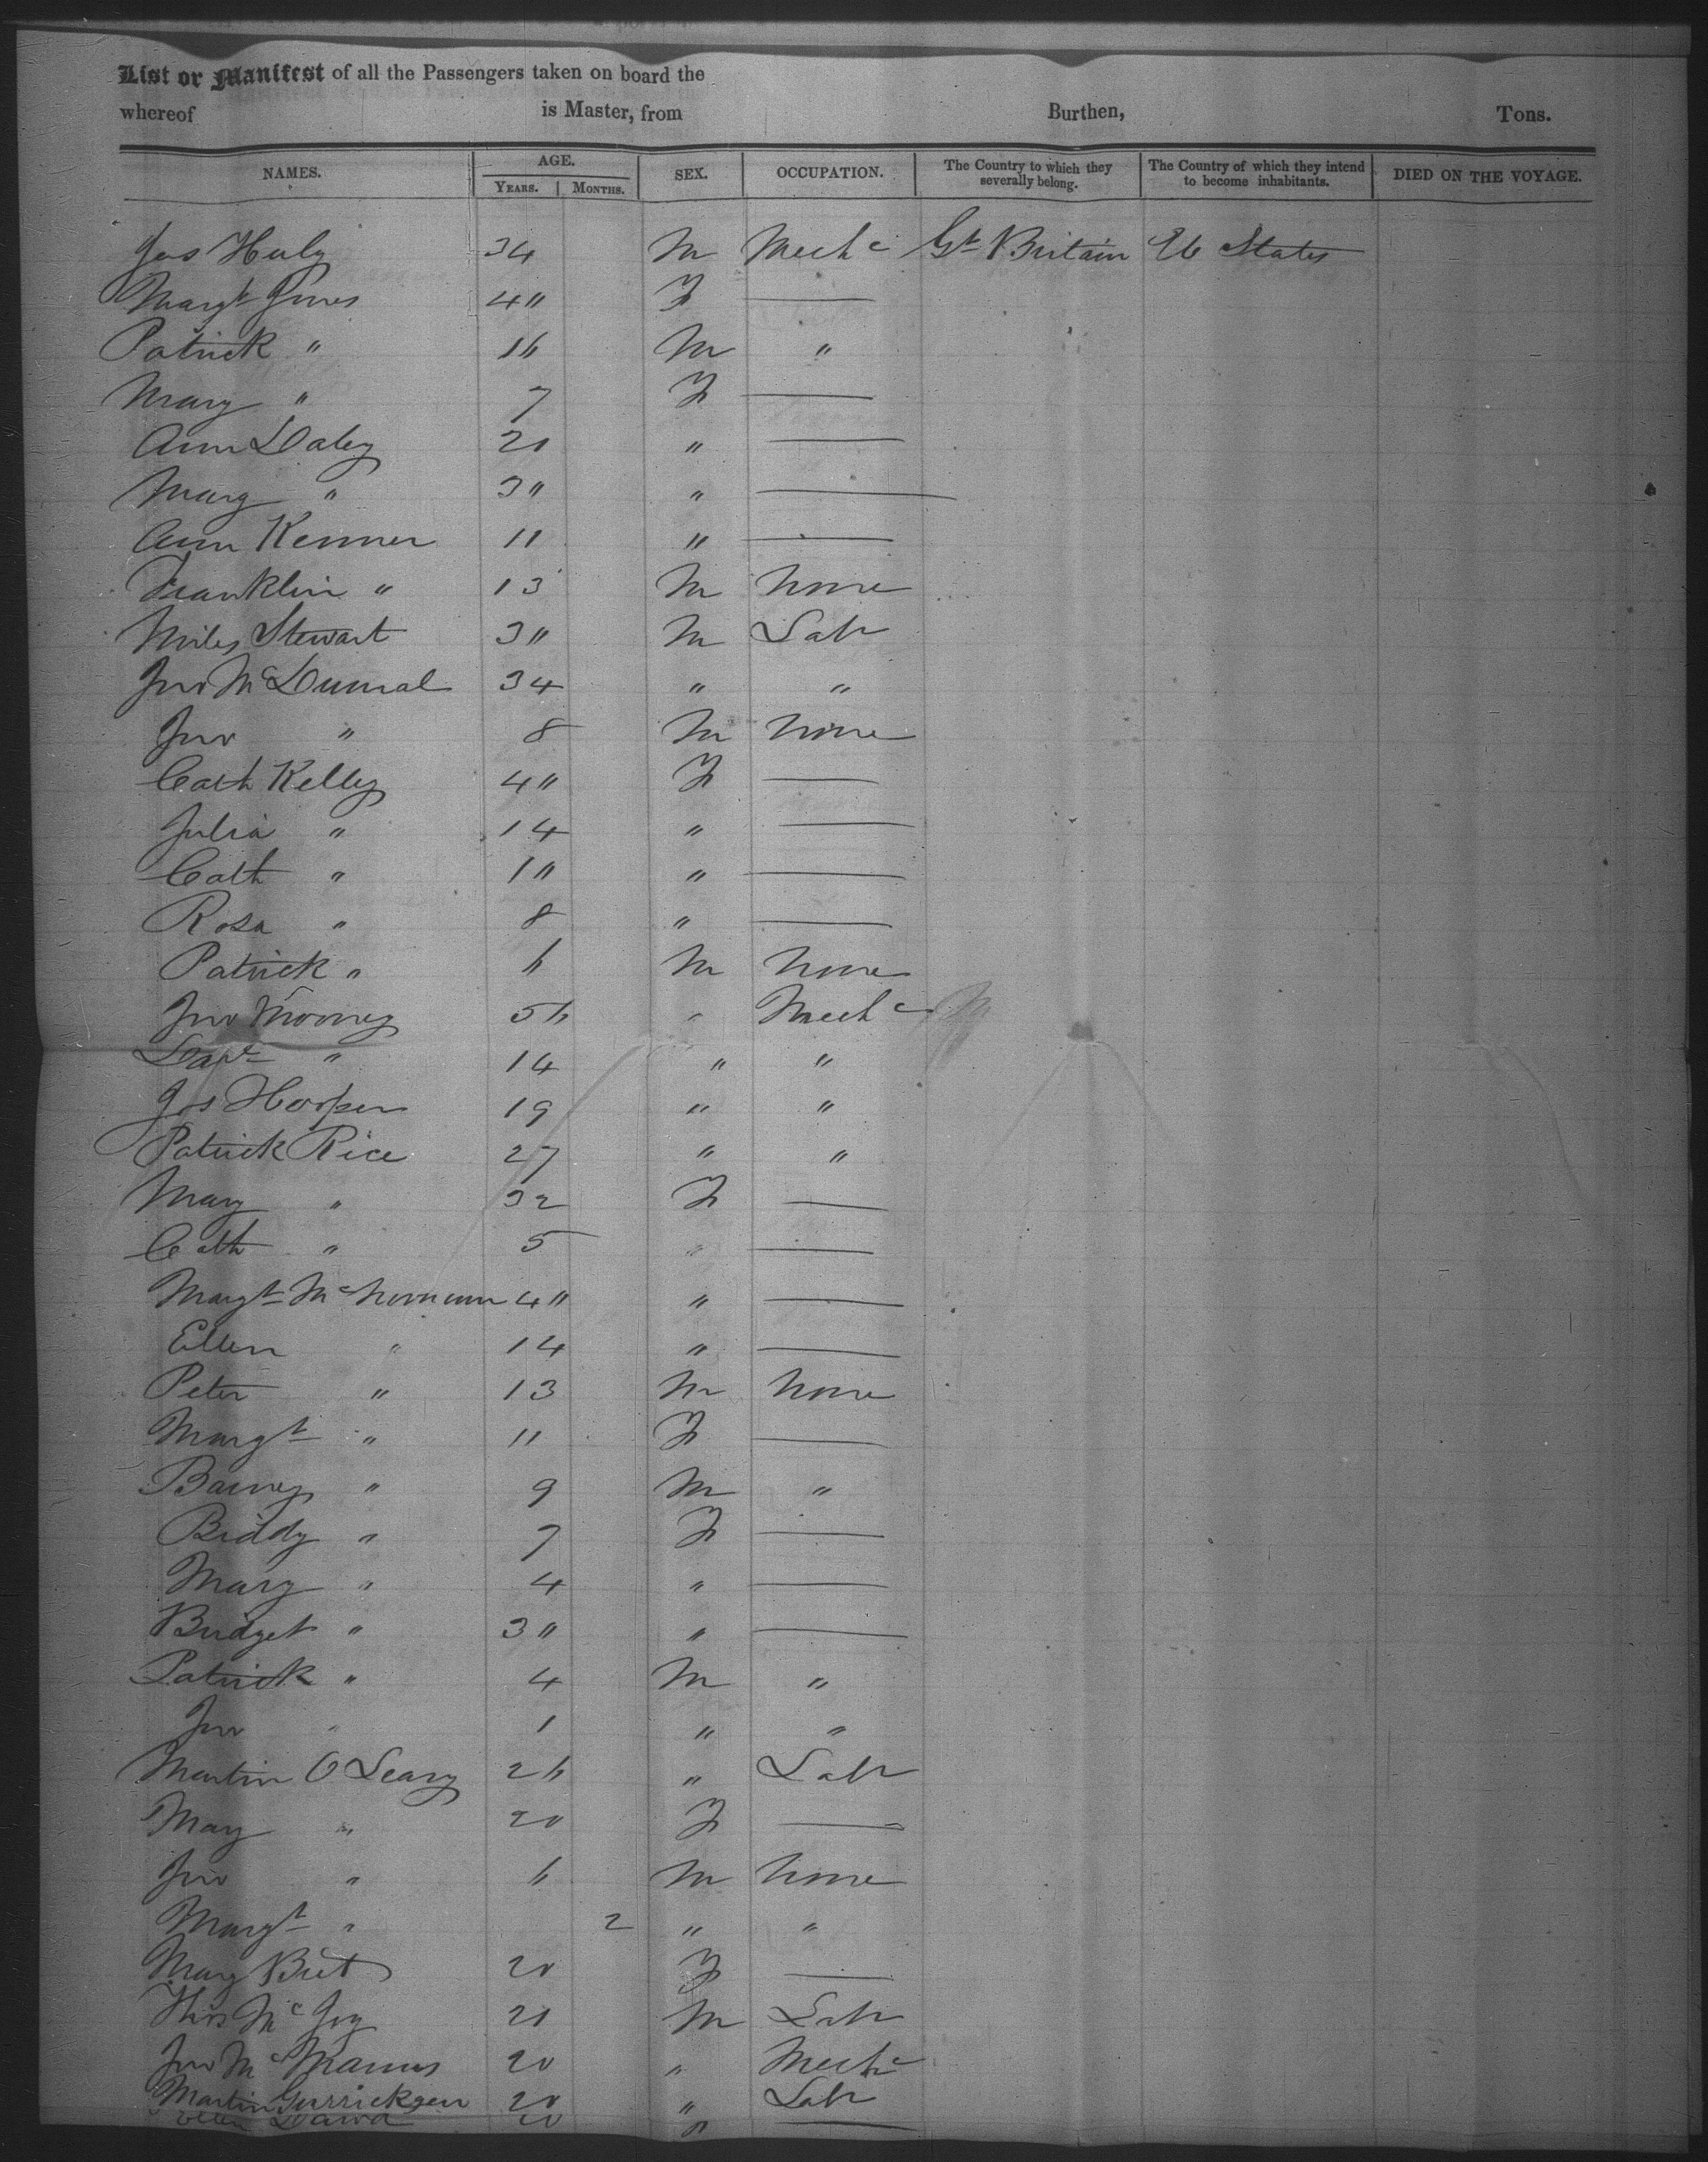 List or Manifest of all the Passengers taken on board the
whereof is Master, from Burthen, Tons.
NAMES. AGE. SEX. OCCUPATION. The Country to which they severally belong. The Country of which they intend to become inhabitants. DIED ON THE VOYAGE.
YEARS. MONTHS.
Jas Haly 34 M Mechc Gt Britain U States
Margt Jones 40 F —
Patrick " 16 M "
Mary " 7 F —
Ann Daley 20 " —
Mary " 30 " —
Ann Kenner 11 " —
Franklin " 13 M None
Miles Stewart 30 M Labr
Jno McDumal 34 " "
Jno " 8 M None
Cath Kelly 40 F —
Julia " 14 " —
Cath " 10 " —
Rosa " 8 " —
Patrick " 6 M None
Jno Mooney 56 " Mechc
" 14 " "
Jos Hooper 19 " "
Patrick Rice 27 " "
Mary " 32 F —
Cath " 5 " —
Margt 40 " —
Ellen " 14 " —
Peter " 13 M None
Margt " 11 F —
Barney " 9 M "
Biddy " 7 F —
Mary " 4 " —
Bridget " 30 " —
Patrick " 4 M "
Jno " 1 " "
Martin O Leary 26 " Labr
Mary " 20 F —
Jno " 6 M None
Margt " 2 " "
Mary 20 F —
Thos McJoy 20 M Labr
Jno McManus 20 " Mechc
Martin 20 " Labr
Ellen 20 F —